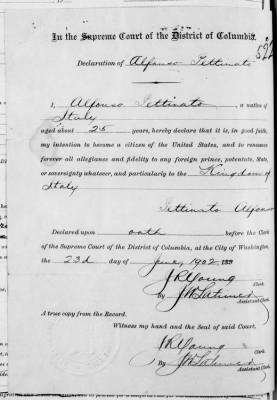 In the Supreme Court of the District of Columbia.
522
Declaration of Alfonso Pettinato
I, Alfonso Pettinato, a native of
Italy
aged about 25 years, hereby declare that it is, in good faith,
my intention to become a citizen of the United States, and to renounce
forever all allegiance and fidelity to any foreign prince, potentate, State,
or sovereignty whatever, and particularly to the Kingdom of
Italy
Pettinato Alfonso
Declared upon oath before the Clerk
of the Supreme Court of the District of Columbia, at the City of Washington,
the 23d day of June, 1902, 189
J R Young Clerk
By J W Latimer
Assistant Clerk
A true copy from the Record.
Witness my hand and the Seal of said Court.
J R Young
Clerk
By J W Latimer
Assistant Clerk